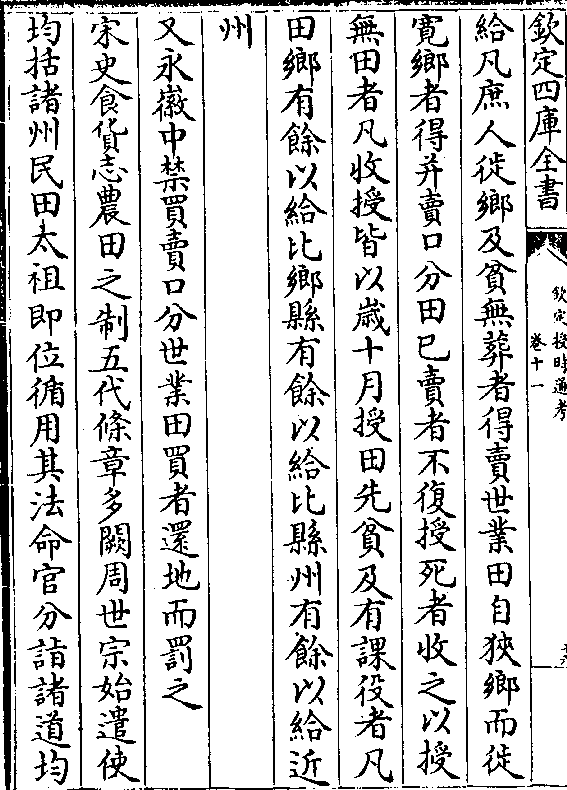 欽定四庫全書
欽定授時通考
卷十一
給凡庶人徙鄉及貧無葬者得賣世業田自狹鄉而徙
寛鄉者得并賣口分田已賣者不復授死者收之以授
無田者凡收授皆以歳十月授田先貧及有課役者凡
田鄉有餘以給比鄉縣有餘以給比縣州有餘以給近
州
又永徽中禁買賣口分世業田買者還地而罰之
宋史食貨志農田之制五代條章多闕周世宗始遣使
均括諸州民田太祖即位循用其法命官分詣諸道均